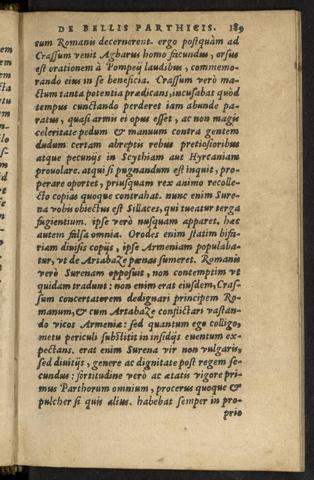 DE BELLIS PARTHICIS. 189
cum Romanis decernerent. ergo postquàm ad
Crassum venit Agbarus homo facundus, orsus
est orationem à Pompeij laudibus, commemo-
rando eius in se beneficia. Crassum verò ma-
ctum tanta potentia prædicans, incusabat quòd
tempus cunctando perderet iam abunde pa-
ratus, quasi armis ei opus esset, ac non magis
celeritate pedum & manuum contra gentem
dudum certam abreptis rebus pretiosioribus
atque pecunijs in Scythiam aut Hyrcaniam
prouolare. atqui si pugnandum est inquit, pro-
perare oportet, priusquam rex animo recolle-
cto copias quoque contrahat. nunc enim Sure-
na vobis obiectus est & Sillaces, qui tueatur terga
fugientium. ipse verò nusquam apparet. hæc
autem falsa omnia. Orodes enim statim bifa-
riam diuisis copijs, ipse Armeniam populaba-
tur, vt de Artabaze pœnas sumeret. Romanis
verò Surenam opposuit, non contemptim vt
quidam tradunt: non enim erat eiusdem, Cras-
sum concertatorem dedignari principem Ro-
manum, & cum Artabaze conflictari vastan-
do vicos Armeniæ: sed quantum ego colligo,
metu periculi substitit in insidijs euentum ex-
pectans. erat enim Surena vir non vulgaris,
sed diuitijs, genere ac dignitate post regem se-
cundus: fortitudine verò ac ætatis vigore pri-
mus Parthorum omnium, procerus quoque &
pulcher si quis alius. habebat semper in pro-
prio